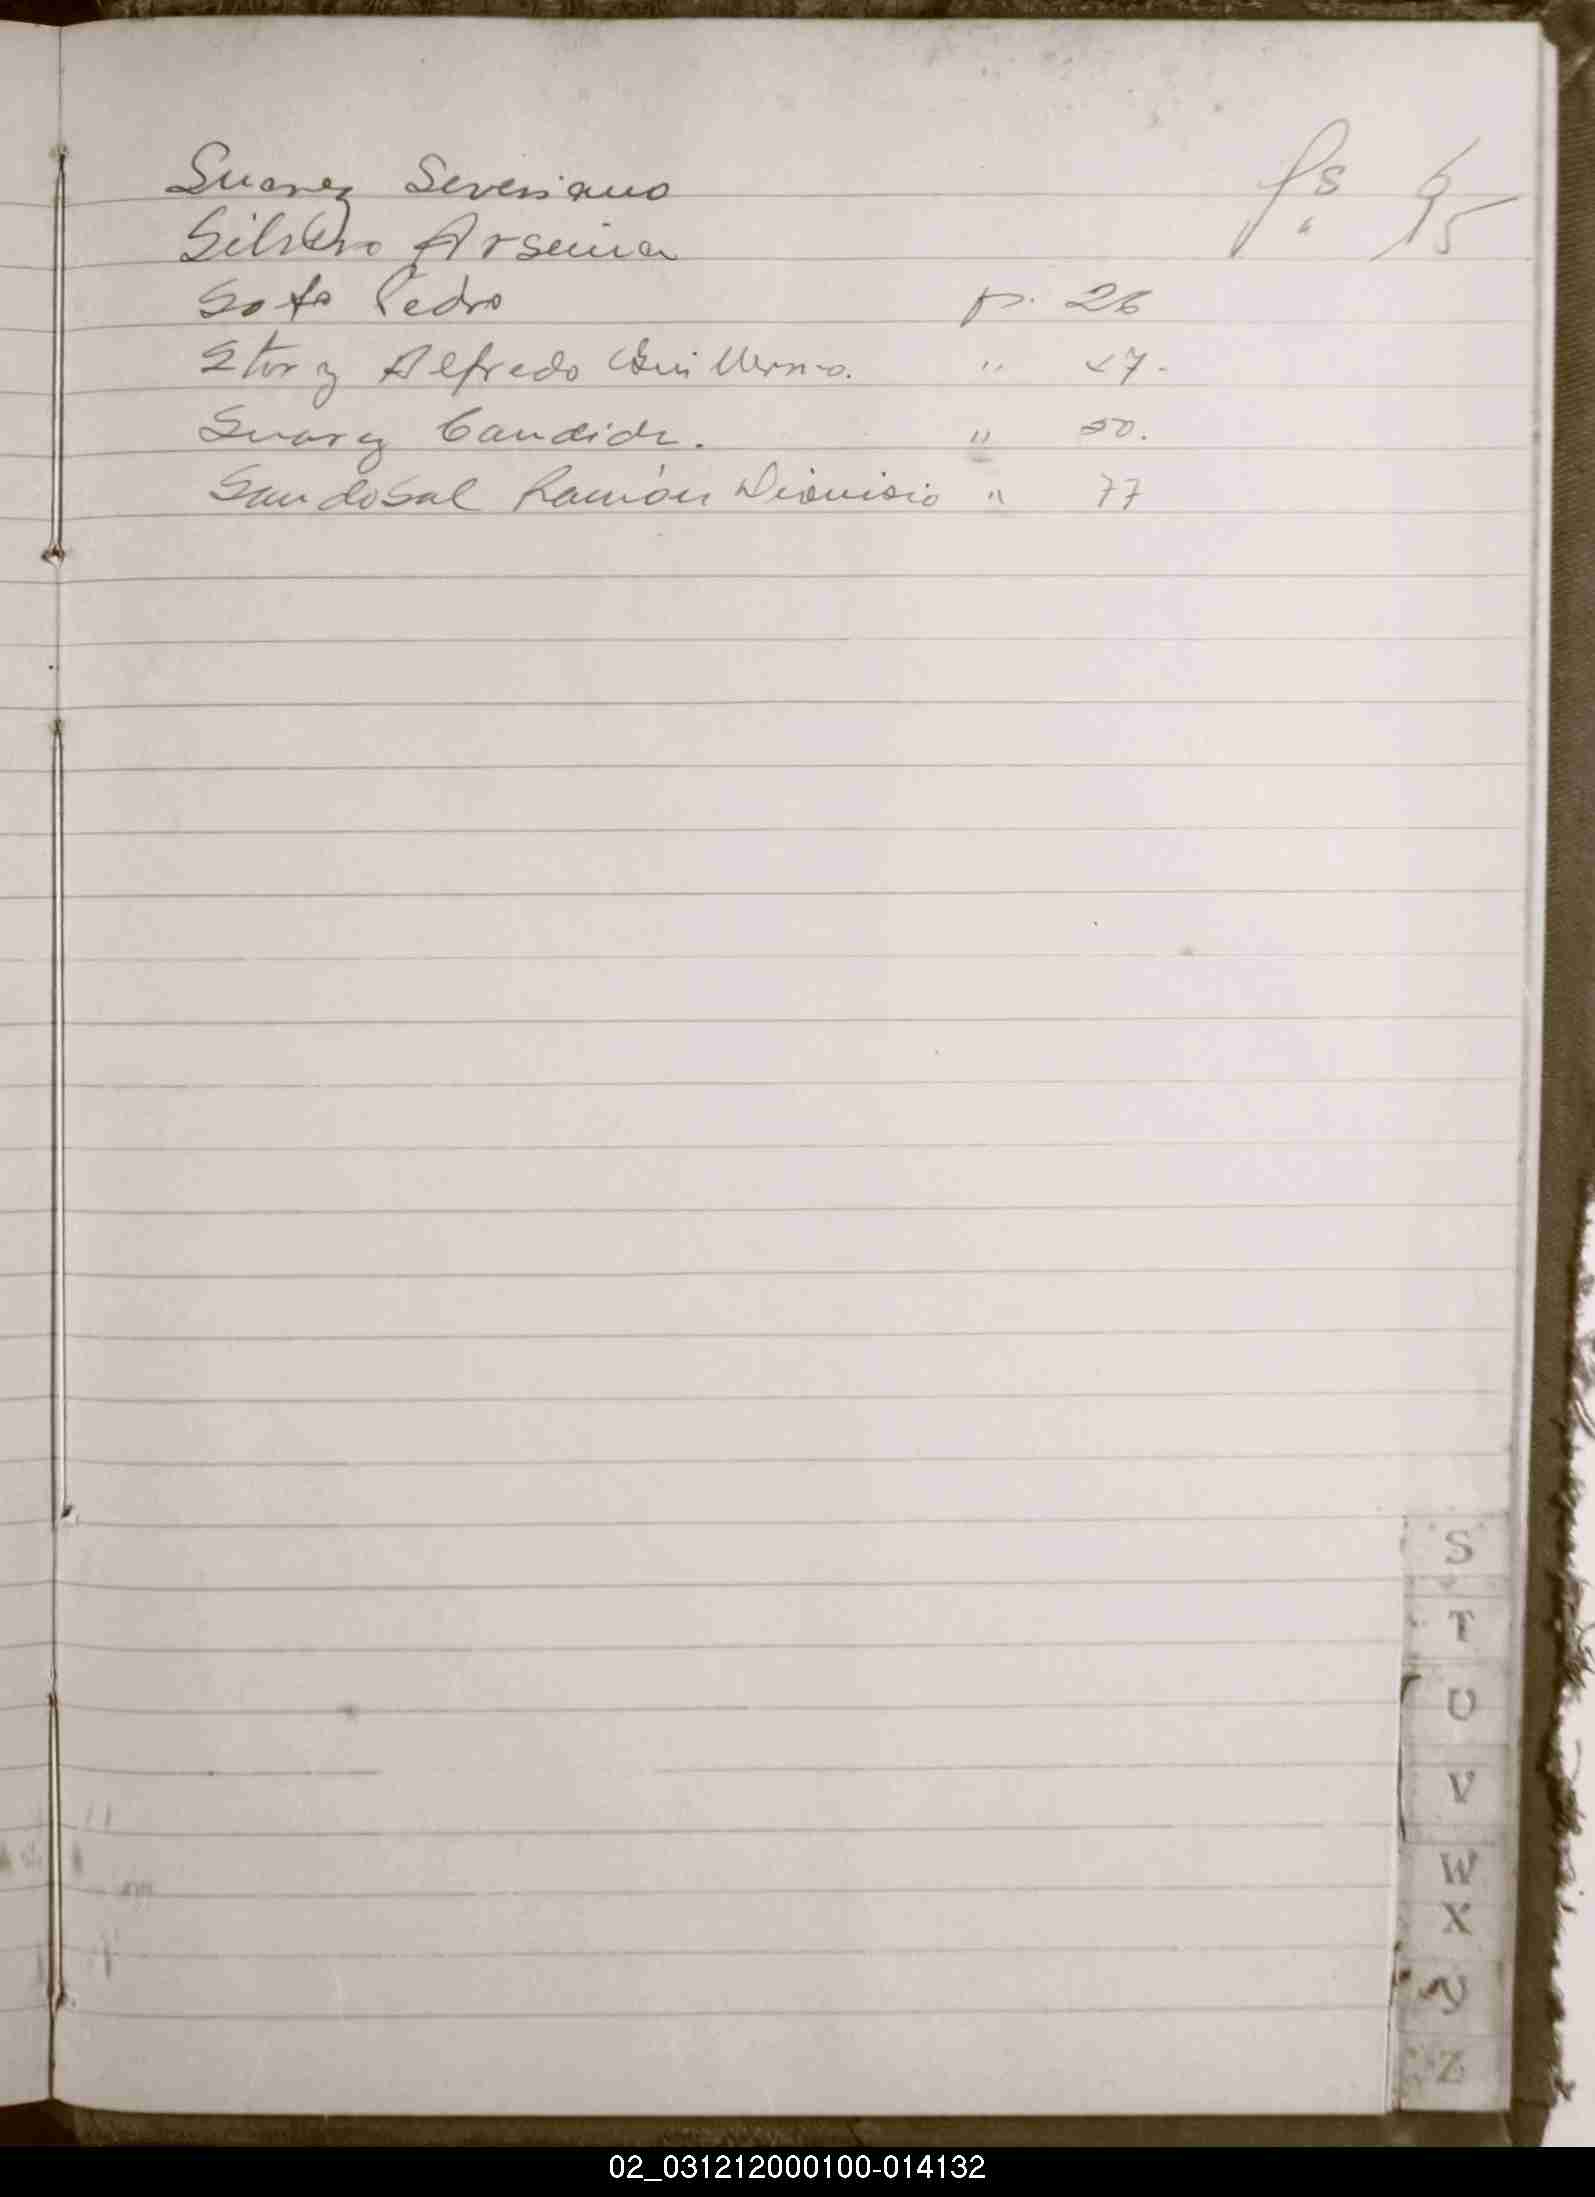 Suarez Severiano fs 6
Silvero Arsenia " 15
Soto Pedro p. 26
Story Alfredo Guillermo. " 47.
Suarez Candida. " 50.
Sandobal Ramón Dionisio " 77
S
T
U
V
W
X
Y
Z
02_031212000100-014132